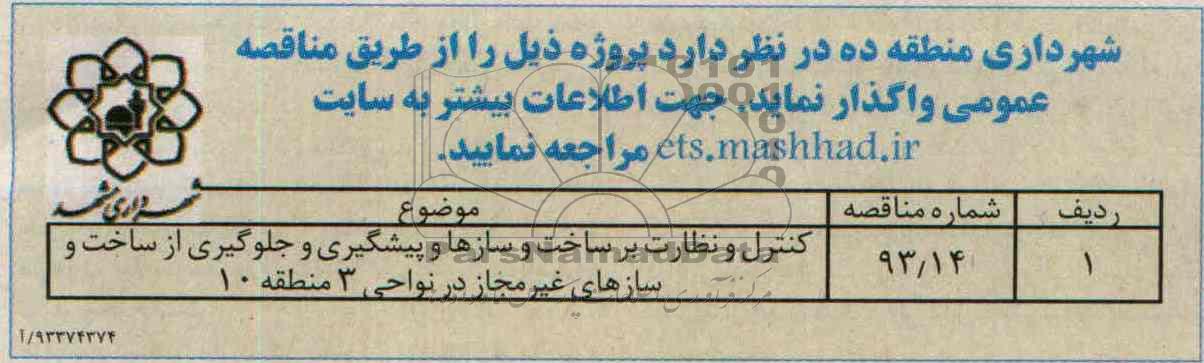 شهرداری منطقه ده در نظر دارد پروژه ذیل را از طریق مناقصه
عمومی واگذار نماید. جهت اطلاعات بیشتر به سایت
ets.mashhad.ir مراجعه نمایید.
شهرداری مشهد
ردیف شماره مناقصه موضوع
۱ ۹۳/۱۴ کنترل و نظارت بر ساخت و سازها و پیشگیری و جلوگیری از ساخت و
سازهای غیرمجاز در نواحی ۳ منطقه ۱۰
ParsNamadData
۹۳۳۷۴۳۷۴/آ